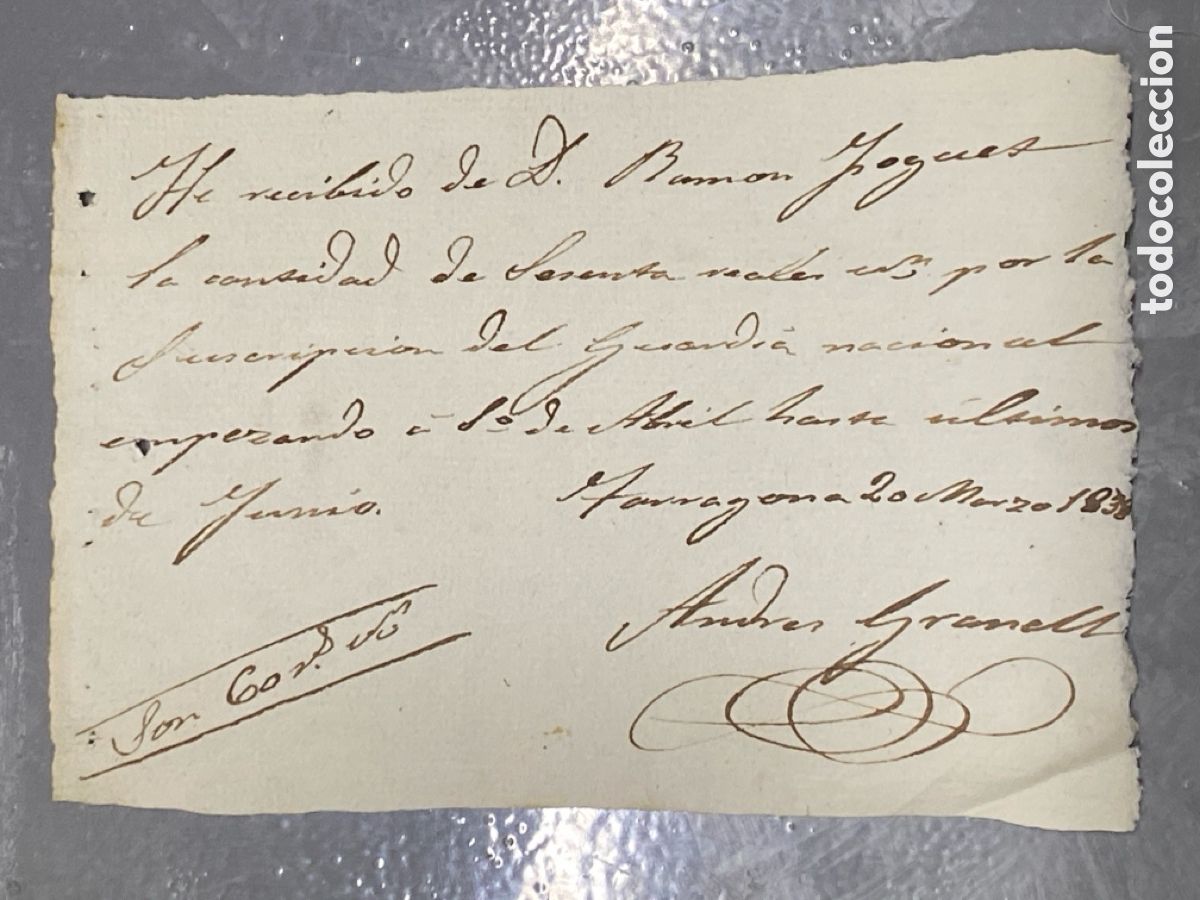 He recibido de D. Ramon Foguet
la cantidad de Sesenta reales vn por la
Suscripcion del Guardia nacional
empezando á 1º de Abril hasta últimos
de Junio. Tarragona 20 Marzo 1838
Andres Granell
Son 60 rs. vn
todocoleccion